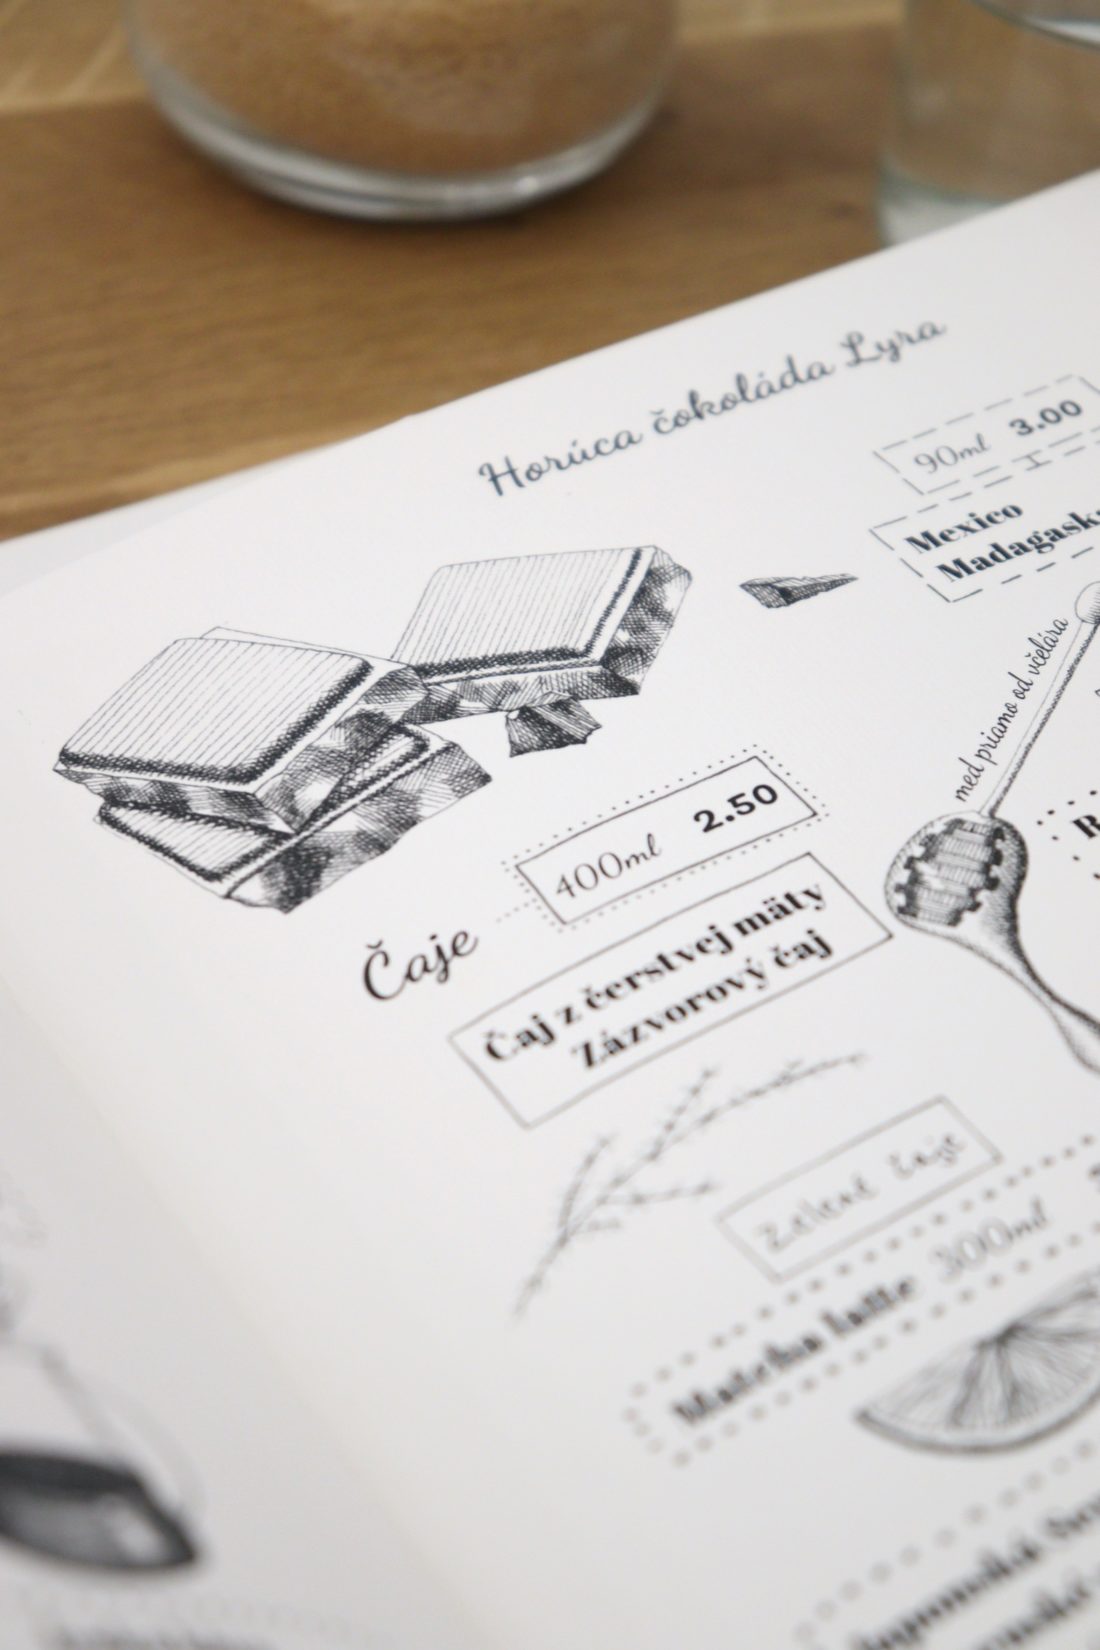 Horúca čokoláda Lyra
90ml 3.00
Mexico
med priamo od včelára
400ml 2.50
Čaje
Čaj z čerstvej mäty
Zázvorový čaj
Zelené čaje
Matcha latte 300ml